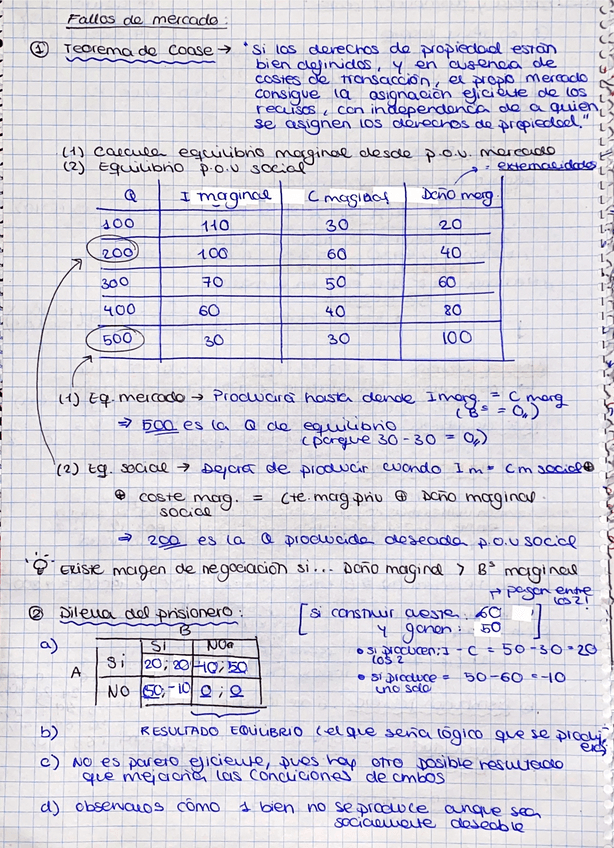 Fallos de mercado:
① Teorema de Coase → "Si los derechos de propiedad están
bien definidos, y en ausencia de
costes de transacción, el propo mercado
consigue la asignación eficiente de los
recursos, con independencia de a quien
se asignen los derechos de propiedad."
(1) Calcula equilibrio marginal desde p.o.v. mercado
(2) Equilibrio p.o.v social
→ = externalidades
Q I marginal C marginal Daño marg.
100 110 30 20
200 100 60 40
300 70 50 60
400 60 40 80
500 30 30 100
(1) Eq. mercado → Producirá hasta donde Imarg. = C marg
(Bº = 0,)
⇒ 500 es la Q de equilibrio
(porque 30-30 = 0,)
(2) Eq. social → Dejará de producir cuando Im = Cm social ⊕
⊕ coste mag. = Cte. mag priv ⊕ Daño marginal.
social
⇒ 200 es la Q producida deseada p.o.v social
Existe margen de negociación si... Daño marginal > Bº marginal
② Dilema del prisionero:
↦ pagan entre
los 2!
[si construir cuesta: 60
y ganan: 50]
a)
B
Sí NOa
A Sí 20; 20 -10; 50
NO 50; -10 0; 0
• si producen: I - C = 50 - 30 = 20
los 2
• si produce = 50-60 = -10
uno solo
b) RESULTADO EQUILIBRIO (el que sería lógico que se produjera)
c) NO es pareto eficiente, pues hay otro posible resultado
que mejoraría las condiciones de ambos
d) observamos cómo 1 bien no se produce aunque sea
socialmente deseable